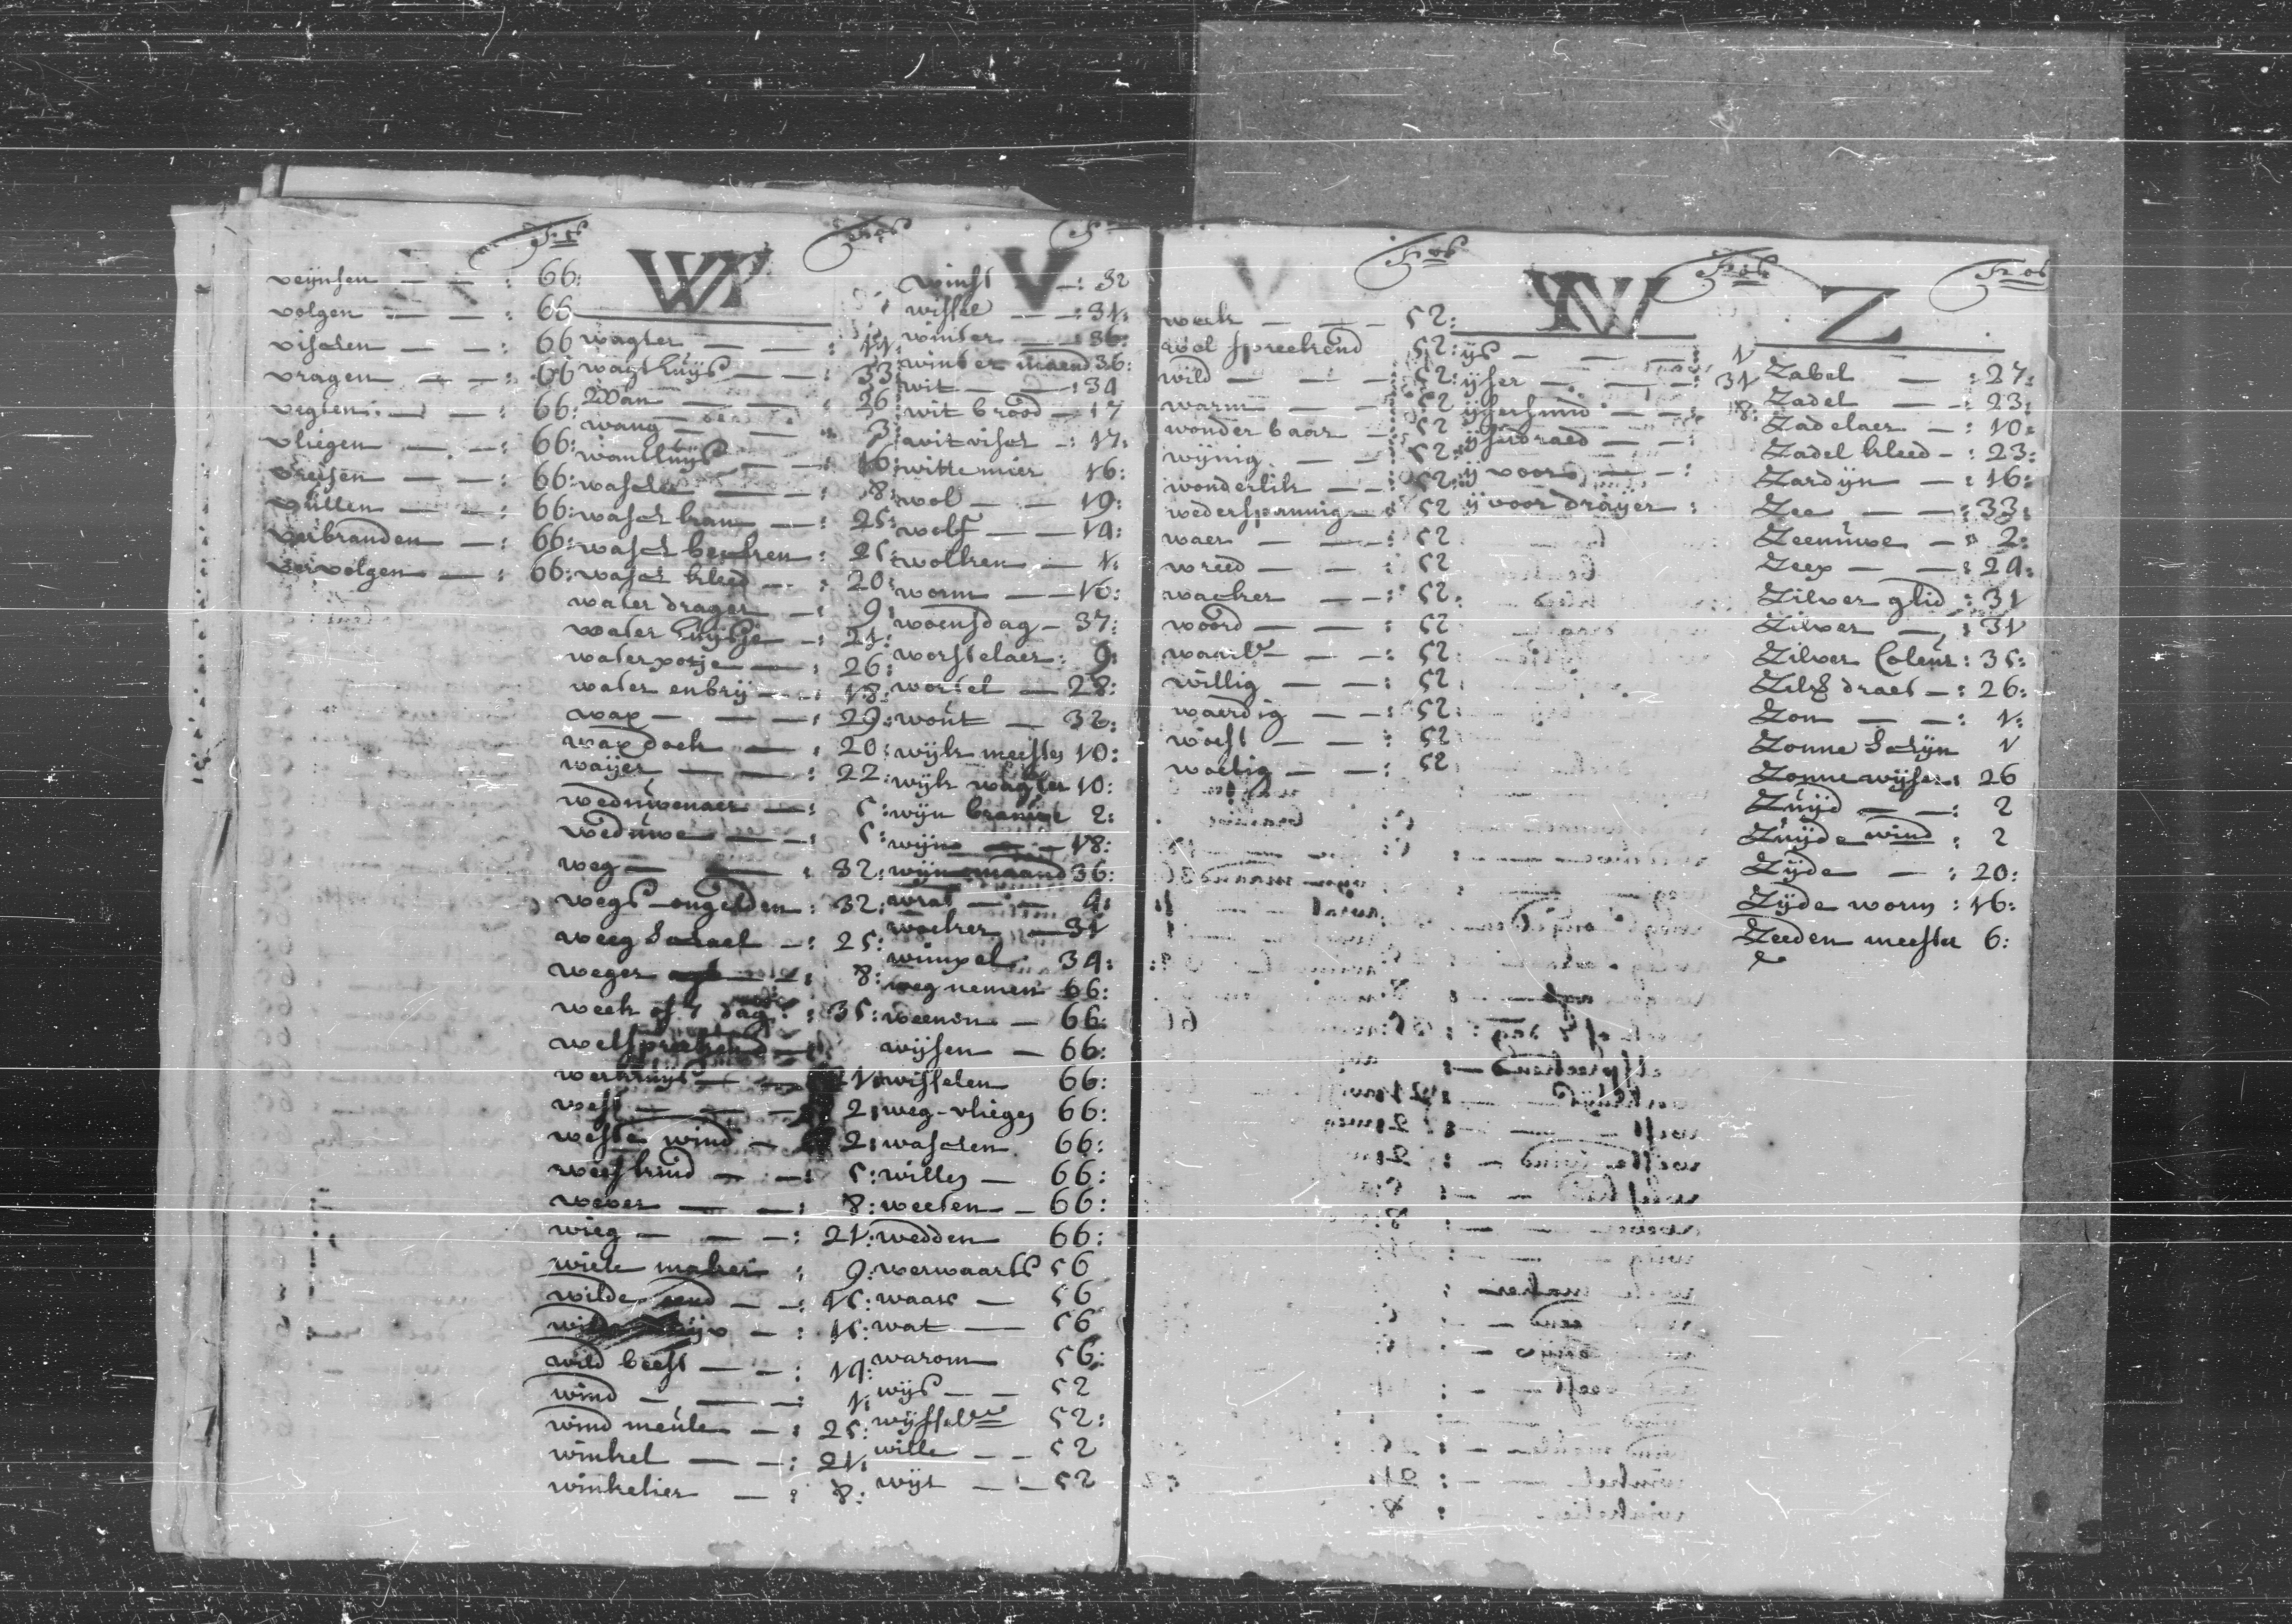 Fo
veijnsen — — : 66:
volgen — — : 66
vischen — — : 66
vragen — — : 66
vegten — — : 66:
vliegen — — : 66:
vreesen — — : 66:
vullen — — : 66:
verbranden — : 66:
vervolgen — : 66:
W
Fos
wagter — — : 11:
wagthuijs — — : 33
Wan — — : 26
wang — — : 3
wandluijs — — : 16:
wascher — — : 8:
wasch bran — : 25:
wasch beukren : 25:
wasch kleed — : 20:
water drager — : 9:
water huijsje — : 21:
waterpotje — : 26:
water enbrij — : 18:
wax — — — : 29:
waxdoek — : 20:
waijer — — : 22:
weduwenaer — : 5:
weduwe — — : 5:
weg — — : 32:
wegs-ongelden : 32:
weeg Schael — : 25:
weger — : 8:
week of 7 dag : 35:
welspreekend —
werkhuijs — 21:
west — — — 2:
weste wind — 2:
weeskind — — : 5:
wever — — : 8:
wieg — — — : 21:
wiele maker : 9:
wilde eend — — : 15:
— : 15:
wild beest — — : 14:
wind — — — : 1:
wind meule — : 25:
winkel — — : 21:
winkelier — : 8:
V
winst — : 32
wissel — — : 31:
winter — : 36:
winter maend 36:
wit — — : 34
wit brood — 17
witvisch — : 17:
witte mier 16:
wol — — 19:
wolf — — 14:
wolken — 1:
worm — — 16:
woensdag — 37:
worstelaer : 9:
wortel — 28:
wout — 32:
wijk meester 10:
wijk wagter 10:
wijn 2:
wijn — — 18:
wijnmaand 36:
wrat — — 4:
woeker — 31
wimpel 34:
wegnemen 66:
weenen — 66:
wijsen — 66:
wisselen 66:
weg-vliegen 66:
waschen 66:
willen — 66:
weeten — 66:
wedden 66:
werwaarts 56
waar — 56
wat — 56
warom 56:
wijs — — 52
52:
wille — — 52
wijt — — 52
V
Fos
week — — — 52:
wel spreekend 52:
wild — — — : 52:
warm — — : 52
wonderbaar — : 52
wijnig — — : 52:
wonderlik — — : 52:
wederspannig — : 52
waer — — — : 52
wreed — — : 52
wacker — — : 52:
woord — — : 52
— — : 52:
willig — — : 52
waerdig — — : 52:
woest — — : 52
woelig — — : 52
Y
Fos
ijs — — — : 1
ijser — — — : 31
ijsersmid — — : 8:
ijserdraed — — :
ijvoor — — :
ijvoor draijer :
Z
Fos
Zabel — : 27:
Zadel — — : 23:
Zadelaer — : 10:
Zadel kleed — : 23:
Zardijn — : 16:
Zee — — : 33:
Zeeuuwe — : 2:
Zeep — — : 29:
Zilver glid : 31
Zilver — : 31
Zilver Coleur : 35:
Zilv draet — : 26:
Zon — — : 1:
Zonne Schijn 1
Zonnewijser : 26
Zuijd — — : 2
Zuijde wind : 2
Zijde — : 20:
Zijde worm : 16:
Zeeden meester 6: